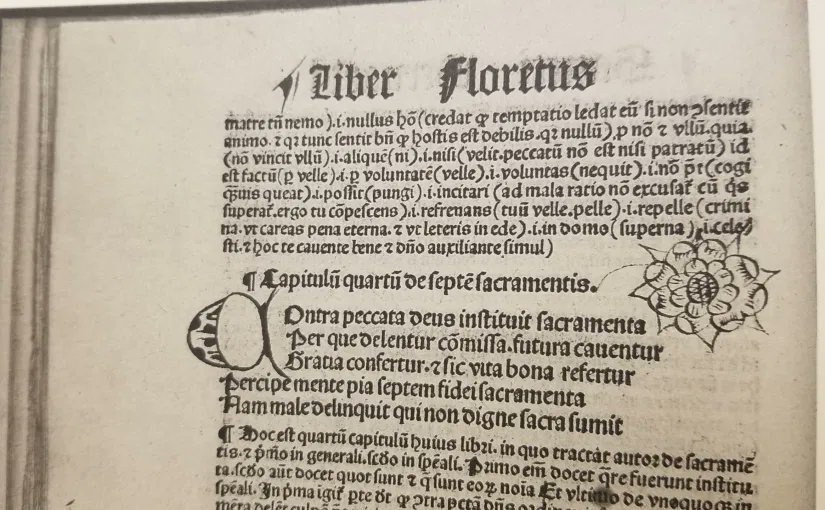 Liber Floretus
matre tñ nemo).i.nullus hõ(credat ꝙ temptatio ledat eũ si non ꝯsentit
animo.⁊ qꝛ tunc sentit bñ ꝙ hostis est debilis.qꝛ nullũ),p nõ ⁊ vllũ.quia.
(nõ vincit vllũ).i.aliquẽ(ni).i.nisi(velit.peccatũ nõ est nisi patratũ) id
est factũ(p velle).i.p voluntatẽ(velle).i.voluntas(nequit).i.nõ põt(cogi
q̃uis queat).i.possit(pungi).i.incitari(ad mala ratio nõ excusat eũ q̃s
superat.ergo tu cõpescens).i.refrenans(tuũ velle.pelle).i.repelle(crimi
na.vt careas pena eterna.⁊ vt leteris in ede).i.in domo(superna).i.celes
sti.⁊ hoc te cauente bene ⁊ dño auxiliante simul)
¶ Capitulũ quartũ de septẽ sacramentis.
Contra peccata deus instituit sacramenta
Per que delentur cõmissa.futura cauentur
Gratia confertur.⁊ sic vita bona refertur
Percipe mente pia septem fidei sacramenta
Nam male delinquit qui non digne sacra sumit
¶ Hoc est quartũ capitulũ huius libri.in quo tractat autor de sacramẽ
tis.⁊ p̃mo in generali.scđo in sp̃eali.Primo em̃ docet q̃re fuerunt institu
ta.scđo aũt docet quot sunt ⁊ q̃ sunt eoꝝ noĩa Et vltimo de vnoquoqꝫ in
sp̃eali.In p̃ma igit᷑ p̃te dt̃ ꝙ ꝯtra pctã dñs